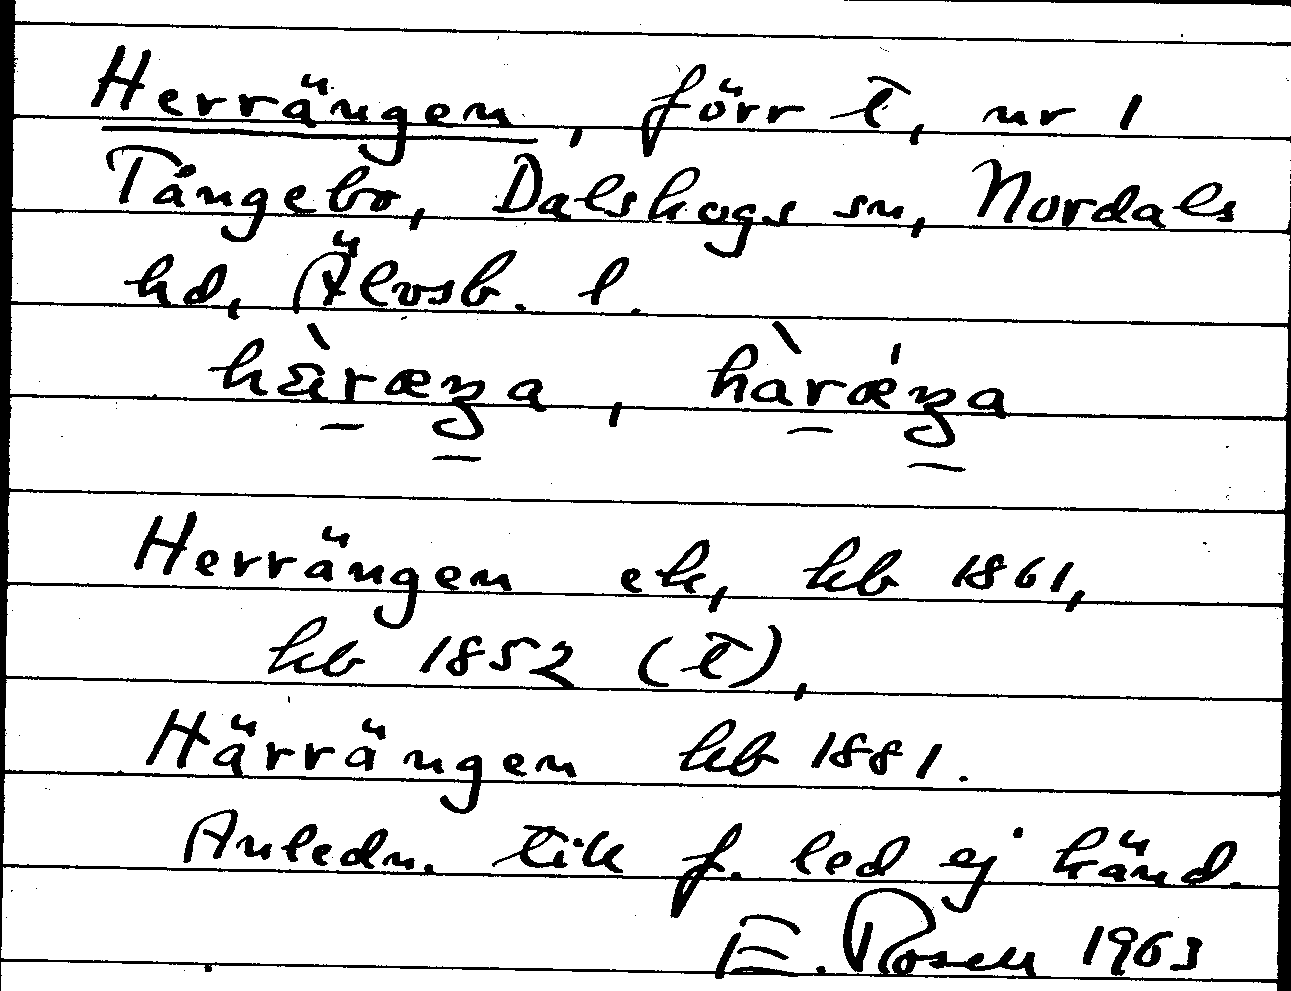 Herrängen, förr t, nr 1
Tångebo, Dalskogs sn, Nordals
hd, Älvsb. l.
hàræŋa, hàrǽŋa
Herrängen ek, hb 1861,
hb 1852 (t),
Härrängen hb 1881.
Anledn. till f. led ej känd.
E. Rosell 1963